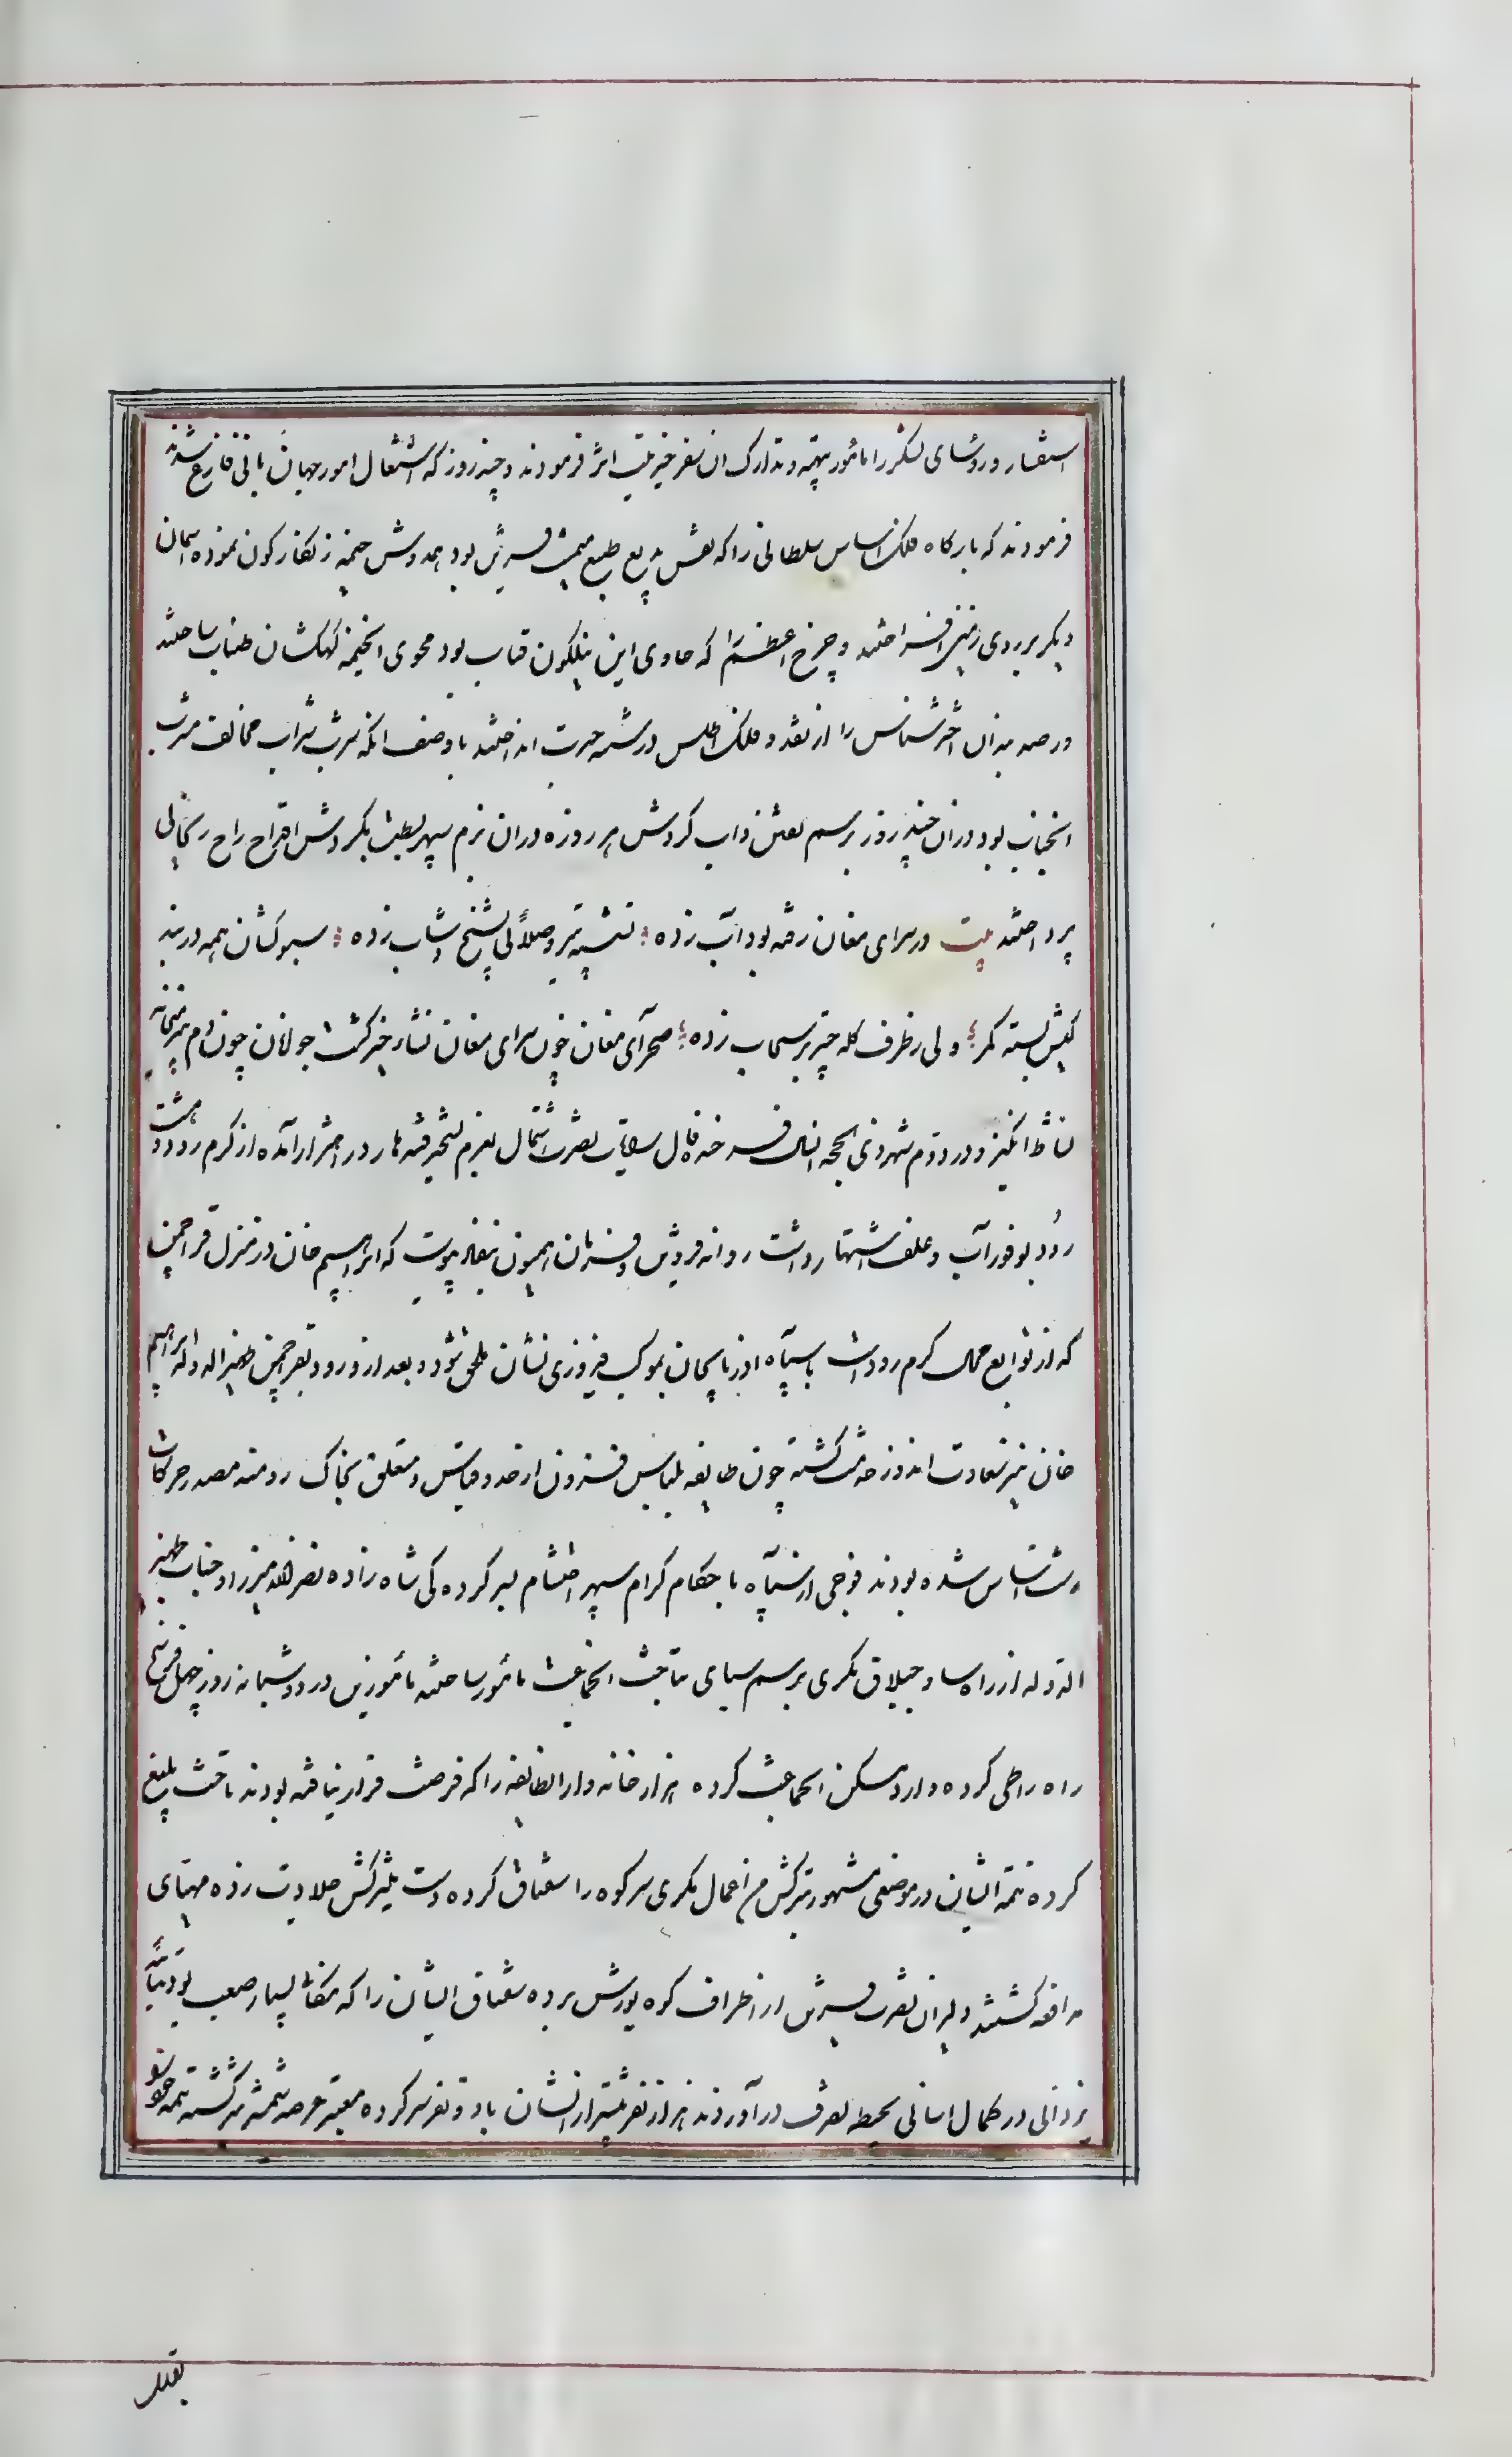 استفسار و رؤسای لشکر را مأمور بتهیه و تدارک آن سفر خیریت اثر فرمودند و چند روز که اشتغال امور جهانبانی فارغ شدند
فرمودند که بارگاه فلک اساس سلطانی را که نقش بدیع طبع آفرینش بود همدوش خیمه زنگارگون نموده آسمان
دیگر بر روی زمین افراختند و چرخ اعظم را که حاوی این نیلگون قباب بود محوی آنخیمه کهکشان طناب ساختند
و رصد بندان اخترشناس را از نقد و فلک اطلس در ششدر حیرت انداختند با وصف آنکه شرب شراب مخالف مشرب
آنجناب بود در آن چند روز برسم تعیش و داب گردش هر روزه در آن بزم سپهر بسطت بگردش اقداح راح ریحانی
پرداختند بیت در سرای مغان رفته بود آب زده نشسته پیر و صلائی بشیخ و شاب زده سبوکشان همه در بند
گیش بسته کمر ولی ز طرف کله چتر بر سحاب زده صحرای مغان چون سرای مغان نشاء خیز گشت جولان چون دم پیر میخانه
نشاط انگیز و در دوم شهر ذی حجه انسال فرخنده فال رایات نصرت اشتمال بعزم تسخیر قندهار در اهتزاز آمده از کرم رود و هشت
رود بوفور آب و علف اشتهار داشت روانه قزوین و فرمان همیون بنفاذ پیوست که ابراهیم خان در منزل قراچمن
که از توابع محال کرم رود است با سپاه آذربایجان بموکب فیروزی نشان ملحق شود و بعد از ورود بقراچمن ظهیر الدوله ابراهیم
خان نیز سعادت اندوز خدمت گشته چون طایفه بلباس فزون از حد و قیاس و متعلق بخاک رومند مصدر حرکات
وحشت اساس شده بودند فوجی از سپاه با حکام کرام سپهر احتشام بسرکردگی شاه زاده نصرالله میرزا و جناب ظهیر
الدوله از راه ساوجبلاق مکری برسم سپاهی بتاخت آنجماعت مأمور ساخته مأمورین در دو شبانه روز چهل فرسخ
راه را طی کرده وارد مسکن آنجماعت کرده هزار خانه وار آنطایفه را که فرصت فرار نیافته بودند تاخت بلیغ
کرده تتمه ایشان در موضعی مشهور بترکش من اعمال مکری سر کوه را سقناق کرده دست بتیرکش جلادت زده مهیای
مدافعه گشتند دلیران نصرت قرین از اطراف کوه یورش برده سقناق ایشان را که مکانی بسیار صعب بود بتأیید
یزدانی در کمال آسانی بحیطه تصرف در آوردند هزار نفر بیشتر از ایشان با دو نفر سرکرده معتبر عرصه شمشیر گشته تتمه
بقلل